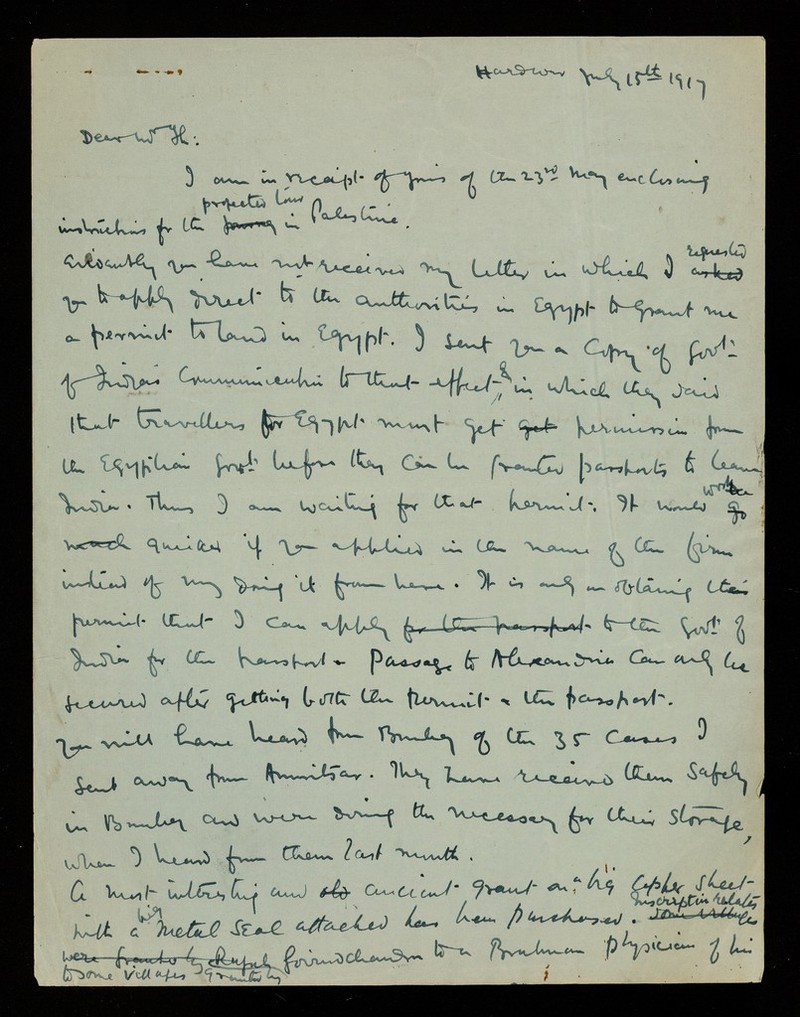 Hardwar July 15th 1917
Dear Mr Th:
I am in receipt of yours of the 23rd May enclosing
projected tour
instructions for the journey in Palestine.
requested
Evidently you have not received my letter in which I asked
you to apply direct to the authorities in Egypt to grant me
a permit to land in Egypt. I sent you a copy of Govt
of India's Communication to that effect, & in which they said
that travellers for Egypt must get get permission from
the Egyptian Govt. before they can be granted passports to leave
India. Thus I am waiting for that permit. It would work be go
much quicker if you applied in the name of the firm
instead of my doing it from here. It is only on obtaining this
permit that I can apply for the passport to the Govt of
India for the passport & Passage to Alexandria can only be
secured after getting both the Permit & the passport.
You will have heard from Bombay of the 35 cases I
sent away from Amritsar. They have received them safely
in Bombay and were doing the necessary for their storage,
when I heard from them last month.
A most interesting and old ancient grant on a big Copper sheet
big inscription relates
with a metal seal attached has been purchased. Some villages
were granted by Govindchandra to a Brahman physician of his
to some villages granted by